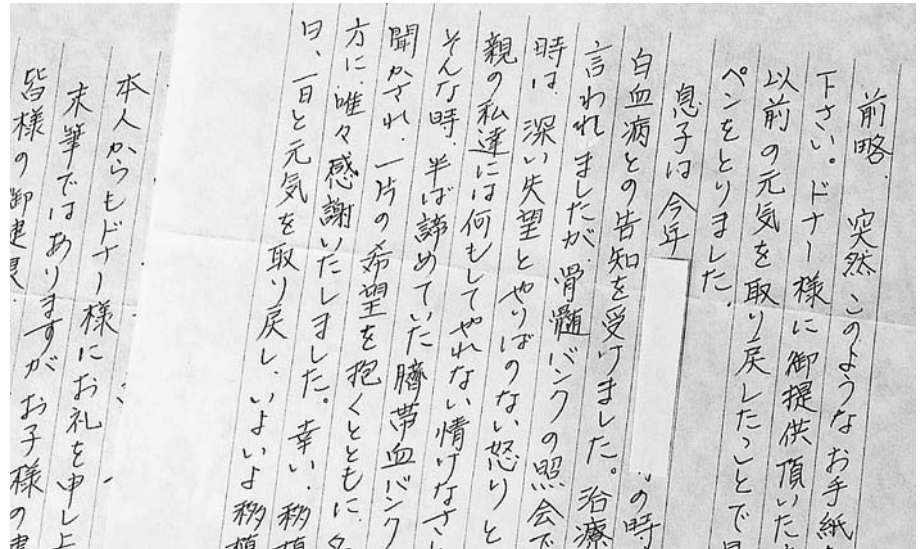 前略、突然このようなお手紙
下さい。ドナー様に御提供頂いた
以前の元気を取り戻したことで
ペンをとりました。
息子は今年
の時、
白血病との告知を受けました。治療
言われましたが、骨髄バンクの照会で
時は、深い失望とやりばのない怒りと
親の私達には何もしてやれない情けなさ
そんな時、半ば諦めていた臍帯血バンク
聞かされ、一片の希望を抱くとともに、
方に唯々感謝いたしました。幸い、移植
日、一日と元気を取り戻し、いよいよ移植
本人からもドナー様にお礼を申し上
末筆ではありますが、お子様の
皆様の御健